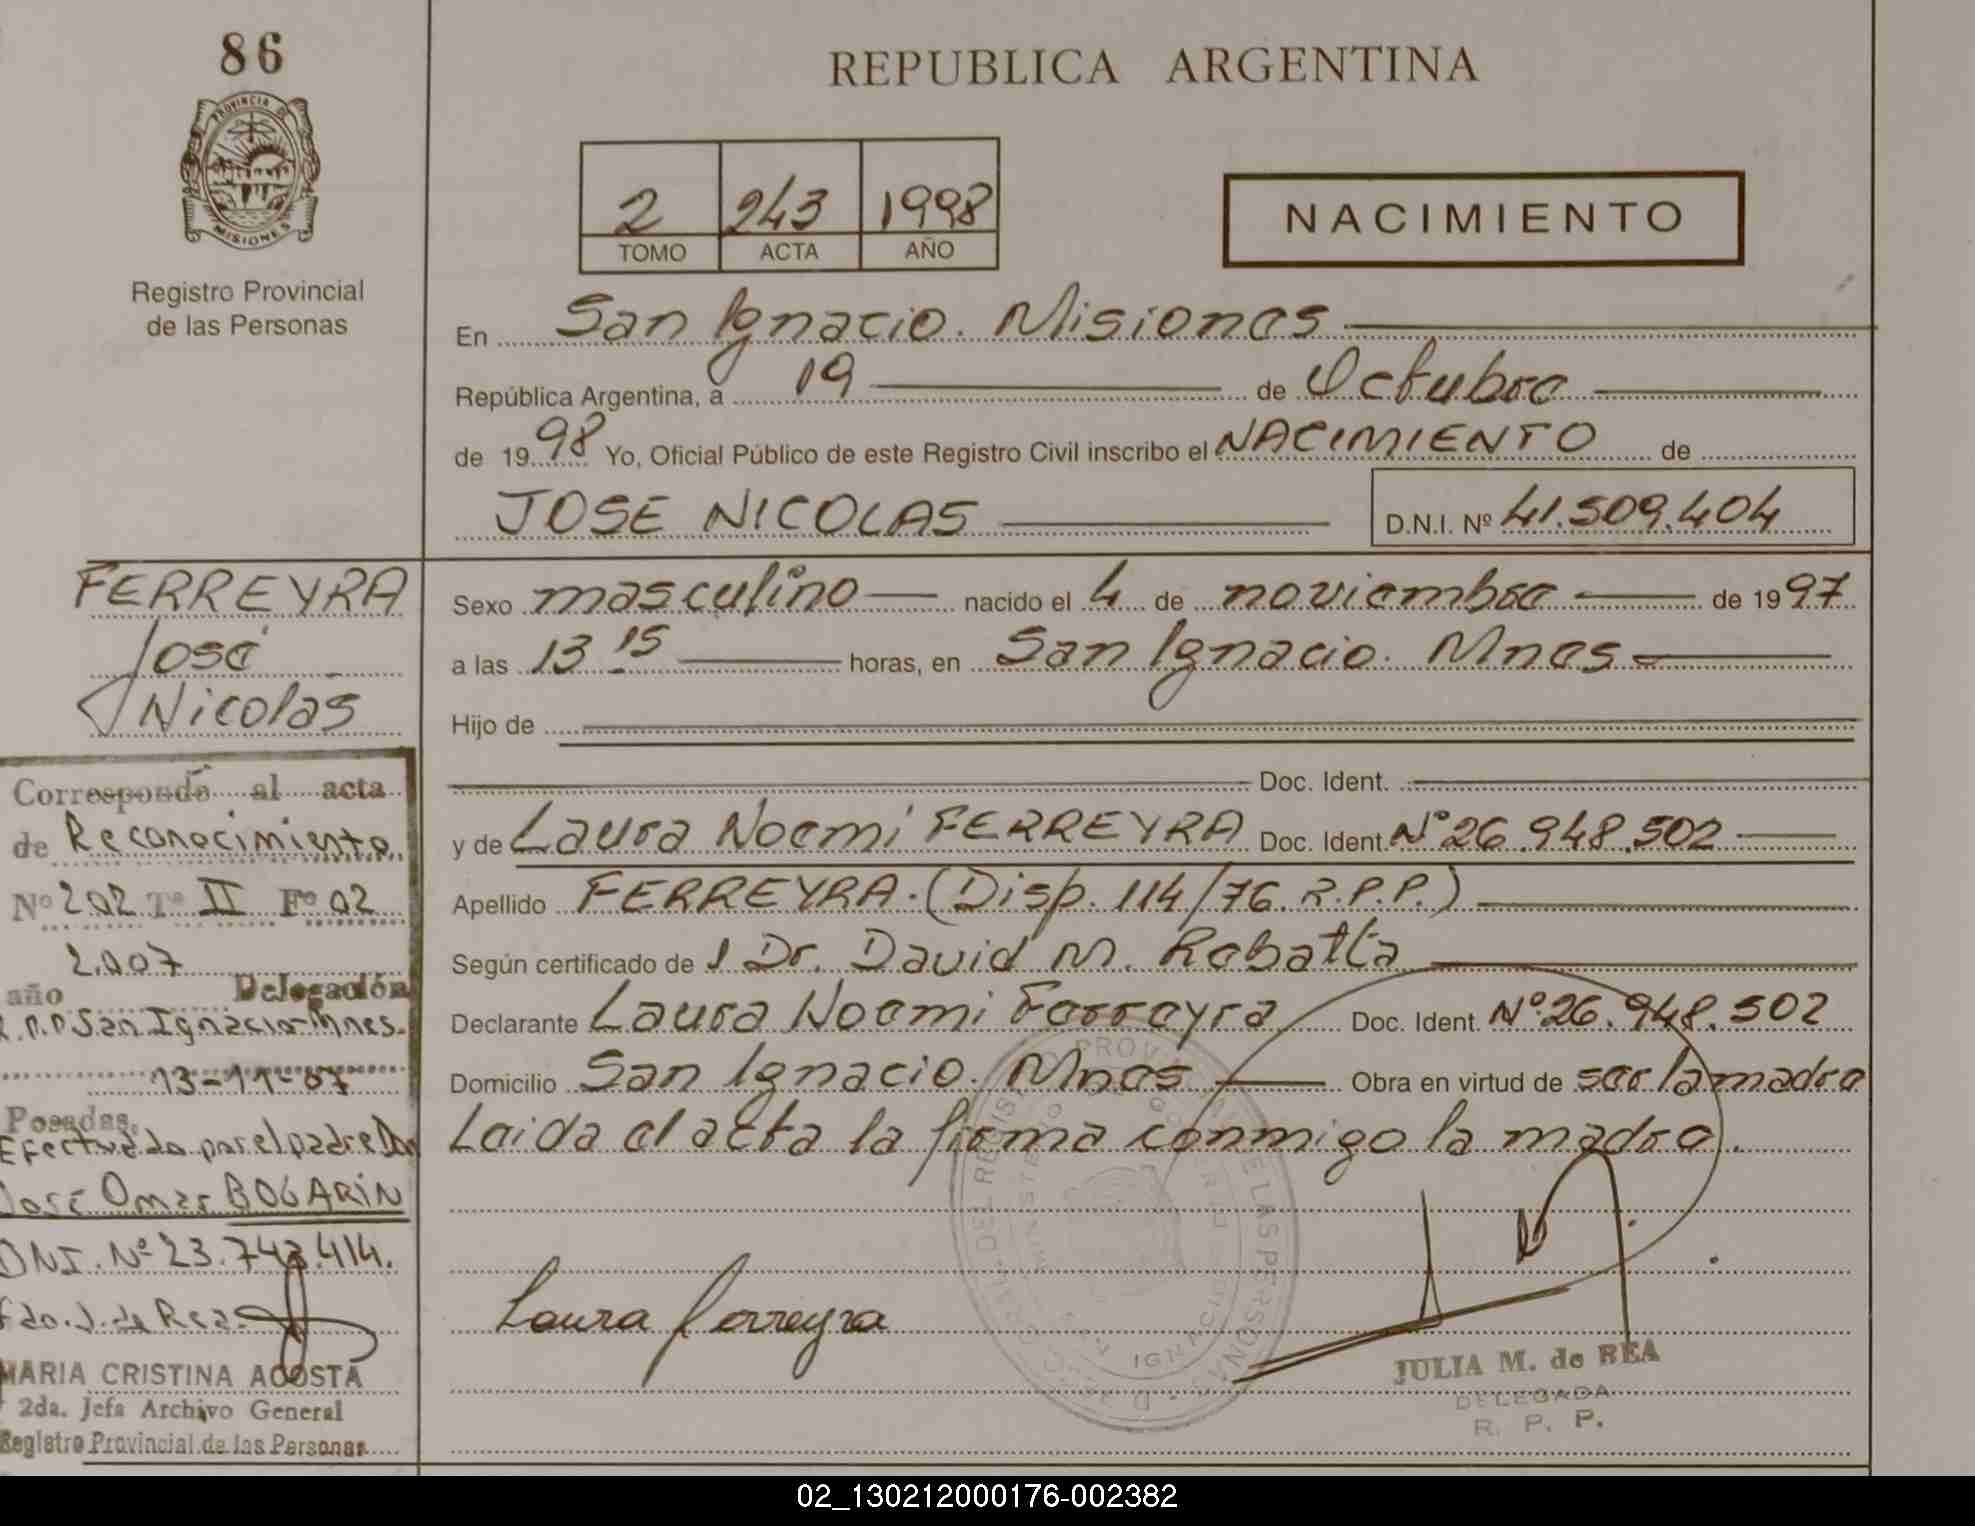 86
PROVINCIA DE
MISIONES
Registro Provincial
de las Personas
REPUBLICA ARGENTINA
2 243 1998
TOMO ACTA AÑO
NACIMIENTO
En San Ignacio. Misiones
República Argentina, a 19 de Octubre
de 1998 Yo, Oficial Público de este Registro Civil inscribo el NACIMIENTO de
JOSE NICOLAS D.N.I. Nº 41.509.404
Sexo masculino nacido el 4 de noviembre de 1997
a las 13 15 horas, en San Ignacio. Mnes
Hijo de
Doc. Ident.
y de Laura Noemi FERREYRA Doc. Ident. Nº 26.948.502
Apellido FERREYRA. (Disp. 114/76. R.P.P.)
Según certificado de Dr. David M. Rebatta
Declarante Laura Noemi Ferreyra Doc. Ident. Nº 26.948.502
Domicilio San Ignacio. Mnes Obra en virtud de ser la madre
Leida el acta la firma conmigo la madre.
Laura Ferreyra
JULIA M. de REA
DELEGADA
R. P. P.
FERREYRA
José
Nicolas
Corresponde al acta
de Reconocimiento
Nº 202 Tº II Fº 02
2.007
año Delegación
R.P.P San Ignacio-Mnes.
13-11-07
Posadas,
Efectuado por el padre Dn
José Omar BOGARIN
DNI. Nº 23.743.414.
Fdo. J. de Rea.
MARIA CRISTINA ACOSTA
2da. Jefa Archivo General
Registro Provincial de las Personas
02_130212000176-002382